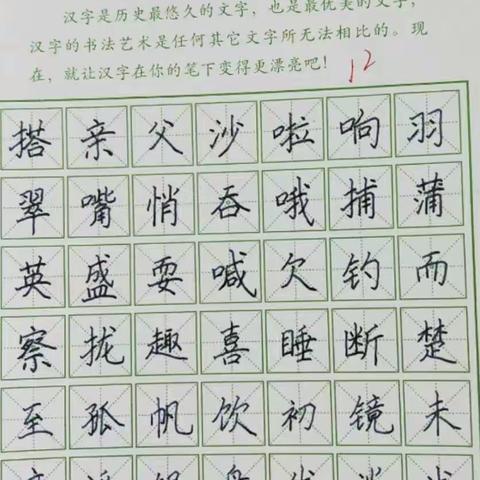 汉字是历史最悠久的文字，也是最优美的文字，
汉字的书法艺术是任何其它文字所无法相比的。现
在，就让汉字在你的笔下变得更漂亮吧！
12
搭亲父沙啦响羽
翠嘴悄吞哦捕蒲
英盛耍喊欠钓而
察拢趣喜睡断楚
至孤帆饮初镜未